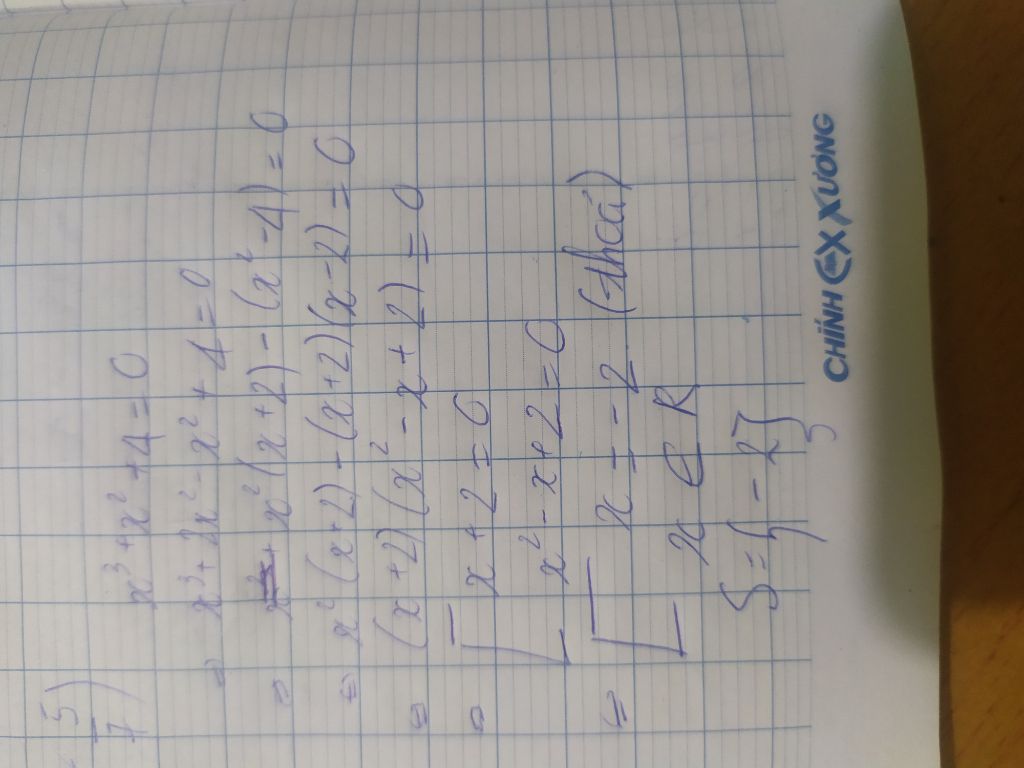 5)
7) x³ + x² + 4 = 0
⇔ x³ + 2x² - x² + 4 = 0
⇔ x² (x + 2) - (x² - 4) = 0
⇔ x² (x + 2) - (x + 2)(x - 2) = 0
⇔ (x + 2)(x² - x + 2) = 0
⇔ [ x + 2 = 0
[ x² - x + 2 = 0
⇔ [ x = -2
[ x ∈ R
S = { - 2}
CHÍNH CX XƯƠNG